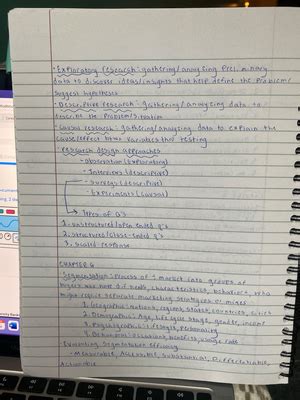 • Exploratory research: gathering/analyzing preliminary
data to discover ideas/insights that help define the problem/
suggest hypotheses
• Descriptive research: gathering/analyzing data to
describe the problem/situation
• Causal research: gathering/analyzing data to explain the
cause/effect btwn variables thru testing
• research design approaches
- Observation (exploratory)
- Interviews (descriptive)
- Surveys (descriptive)
- Experiments (causal)
Types of Q's
1. unstructured/open ended q's
2. structured/close-ended q's
3. scaled response
CHAPTER 6
• Segmentation: process of ÷ market into groups of
buyers w/ needs, characteristics, behaviors, who
might require separate marketing strategies or mixes
1. Geographic: nations, regions, states, counties, cities
2. Demographic: Age, life cycle stage, gender, income
3. Psychographic: lifestyle, personality
4. Behavioral: occasions, benefits, usage rate
• Evaluating segmentation
- Measurable, Accessible, Substantial, Differentiable,
Actionable